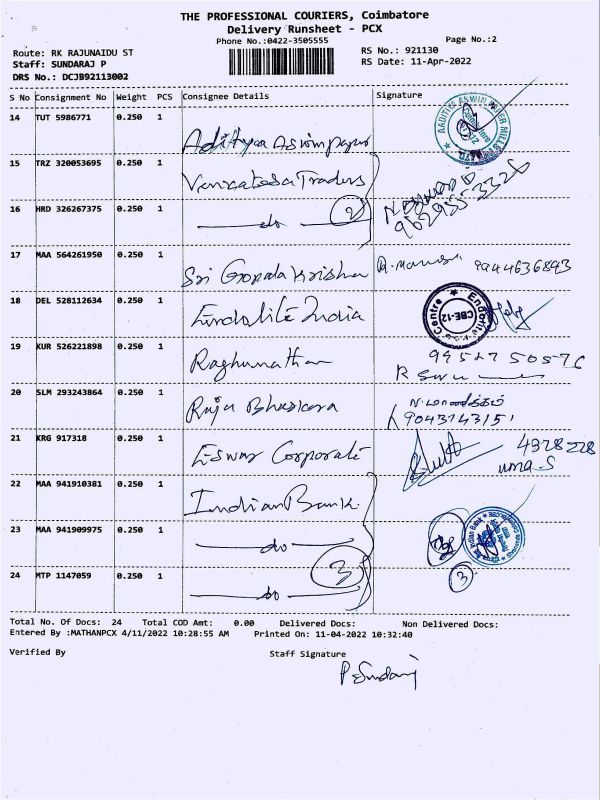 THE PROFESSIONAL COURIERS, Coimbatore
Delivery Runsheet - PCX
Phone No.:0422-3505555
Page No.:2
Route: RK RAJUNAIDU ST
RS No.: 921130
Staff: SUNDARAJ P
RS Date: 11-Apr-2022
DRS No.: DCJB92113002
S No Consignment No Weight PCS Consignee Details Signature
14 TUT 5986771 0.250 1 Adithyaa Aswin paper
15 TRZ 320053695 0.250 1 Venkatesa Traders
16 HRD 326267375 0.250 1 do 2
17 MAA 564261950 0.250 1 Sri Gopala Krishna 9944636893
18 DEL 528112634 0.250 1 Endolite India
Endolite Centre CBE-12
19 KUR 526221898 0.250 1 Raghunathan 99527 50576
20 SLM 293243864 0.250 1 Raja Bhaskara
N. மாணிக்கம்
9043743151
21 KRG 917318 0.250 1 Eswar Corporate 4328228
uma.S
22 MAA 941910381 0.250 1 Indian Bank
23 MAA 941909975 0.250 1 do
24 MTP 1147059 0.250 1 do 3 3
Total No. Of Docs: 24 Total COD Amt: 0.00 Delivered Docs: Non Delivered Docs:
Entered By :MATHANPCX 4/11/2022 10:28:55 AM Printed On: 11-04-2022 10:32:40
Verified By Staff Signature
P. Sundaraj